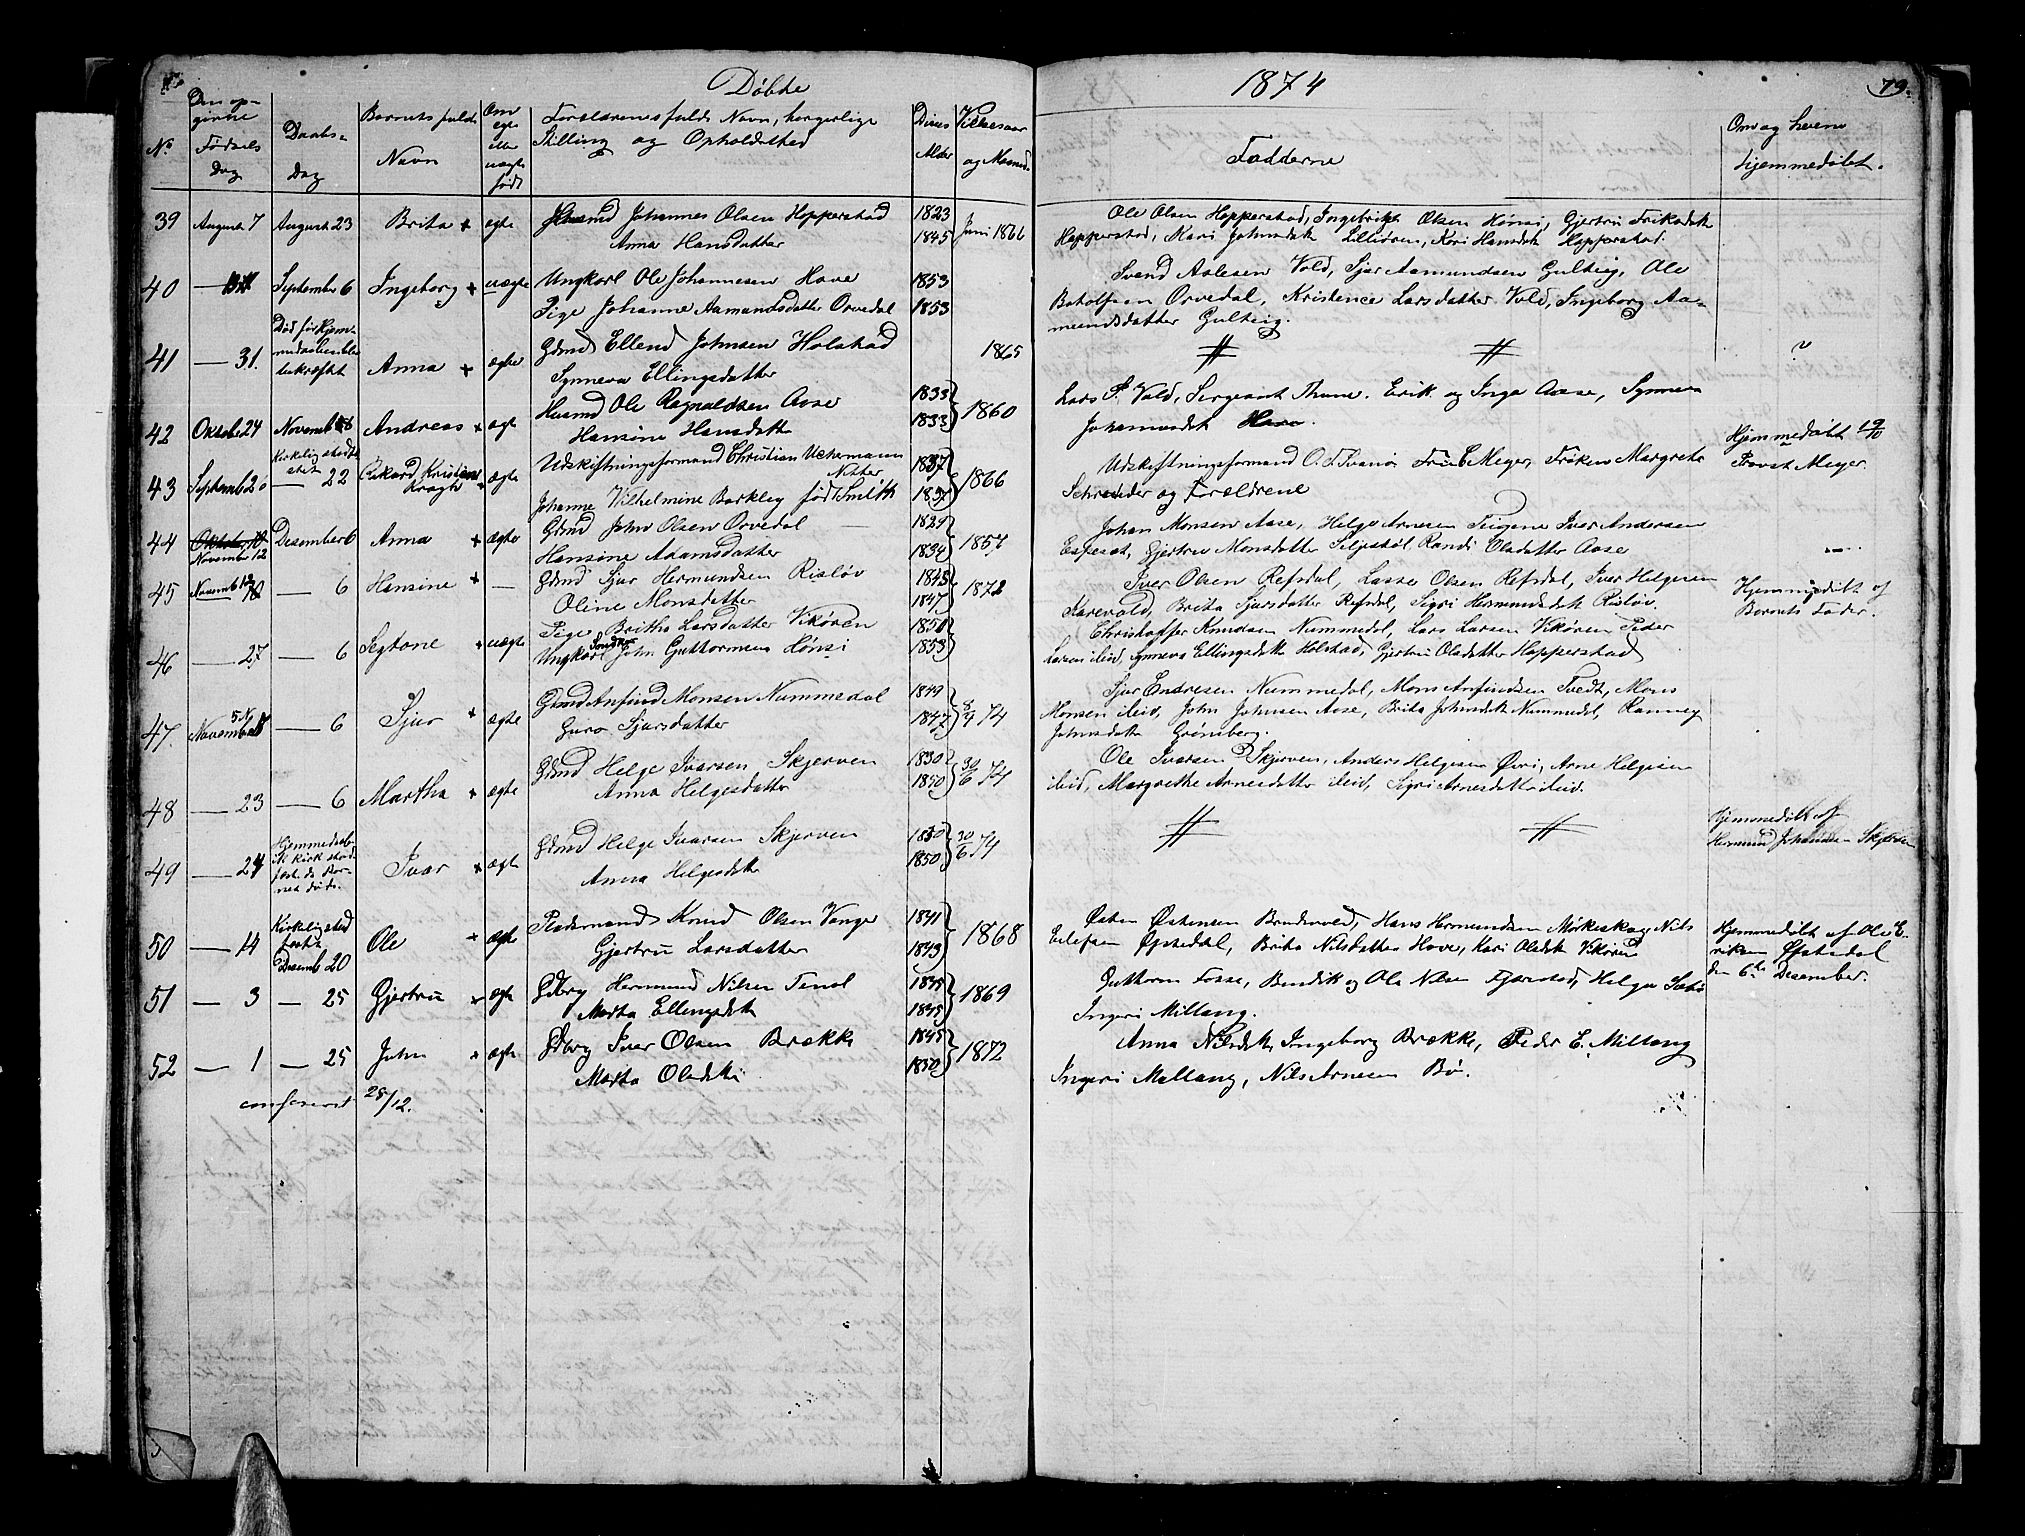 Døbte
1874
79.
No
Den opgivne Fødsels Dag
Daabs-Dag
Barnets fulde Navn
Om egte eller uægte født
Forældrenes fulde Navn, borgerlige Stilling og Opholdssted
Deres Alder
Vielsesaar og Maaned.
Fadderne
Om og hvem hjemmedøbt.
39 August 7 August 23 Brita + ægte
Johannes Olsen Hopperstad 1823
Anna Hansdatter 1845 Juni 1866
Ole Olsen Hopperstad, Ingebrigt Olsen Hønsi, Gjertru
Hopperstad, Mari Johnsdatt Lilliøren, Kari Hansdtt Hopperstad.
40 September 6 Ingeborg + uægte
Ungkarl Ole Johannesen Hove 1853
Pige Johanne Aamundsdatter Orvedal 1853
Svend Aslesen Vold, Sjur Aamundsen Gulteig, Ole
Botolfsen Orvedal, Kristence Larsdatter Vold, Ingeborg Aa-
mundsdatter Gulteig.
41 — 31. Død før Hjem-
medaaben blev
bekræftet Anna + ægte
Gbmd Ellend Johnsen Holstad
Synneva Ellingsdatter 1865
# # ?
42 Oktob 24 Novemb 8 Andreas + ægte
Husmd Ole Ragnaldsen Aase 1833
Hansine Hansdatt 1833 1860
Lars P. Vold, Sergeant Thune. Erik og Inga Aase, Synneva
Johannesdtt
43 Septemb 20 — 22 Rikard Kristian Kragh + ægte
Udskiftningsformand Christian Uchermann Nitter 1837
Johanne Vilhelmine Barkley født Smith 1837 1866
Udskiftningsformand O. F. Ivanø Fru E Meyer, Frøken Margrete
Schrøder og Forældrene
Hjemmedøbt 19/10
Provst Meyer.
44 Novembr 12 Desember 6 Anna + ægte
Gbmd John Olsen Orvedal 1829
Hansine Adamsdatter 1834 1857
Johan Monsen Aase, Helge Arnesen Teigene Iver Andersen
Espeset, Gjertru Monsdatter Seljestøl Randi Olsdatter Aase
45 Novemb — 6 Hansine + —
Gbmd Sjur Hermundsen Risløv 1843
Oline Monsdatter 1847 1872
Iver Olsen Refsdal, Lasse Olsen Refsdal, Iver Helgesen
Farevald, Brita Sjursdatter Refsdal, Sigri Hermundsdtt Risløv.
Hjemmedøbt af
Barnets Fader.
46 — 27 — 6 + uægte
Pige Britha Larsdatter Vikøren 1850
Ungkarl John Guttormsen Hønsi 1853
Christoffer Knudsen Nummedal, Lars Larsen Vikøren Peder
Larsen ibid, Synneva Ellingsdatt Holstad, Gjertru Olsdatter Hopperstad
47. Novemb — 6 Sjur + ægte
Gbmd Anfind Monsen Nummedal 1849
Guro Sjursdatter 1847 8/4 74
Sjur Endresen Nummedal, Mons Anfindsen Tvedt, Mons
Monsen ibid, John Johnsen Aase, Brita Johnsdtt Nummedal, Ranney
Johnsdatt Grønsberg.
48 — 23 — 6 Martha + ægte
Gbmd Helge Ivarsen Skjerven 1830
Anna Helgesdatter 1850 30/6 74
Ole Ivarsen Skjerven, Anders Helgesen Øvri, Arne Helgesen
ibid, Margrethe Arnesdatter ibid, Sigri Arnesdatt ibid.
49 — 24 Ivar + ægte
Gbmd Helge Ivarsen Skjerven 1830
Anna Helgesdtt 1850 30/6 74
# #
Hjemmedøbt af
Hermund Johannesen Skjerven
50 — 14 Kirkelig sted
festet
Desemb 20 Ole + ægte
Pladsmand Olsen Vange 1841
Gjertru Larsdatter 1843 1868
Østen Østensen Brudevold, Hans Hermundsen Mørkeskog Nils
Eilefsen Øfstedal, Brita Nilsdatter Hove, Kari Olsdtt Vikøren
Hjemmedøbt af Ole E-
riksen Øfstedal
den 6te Desember.
51 — 3 — 25 Gjertru + ægte
Gdbrg Hermund Nilsen Tenol 1845
Marta Ellingsdtt 1845 1869
Guthorm Fosse, Bendik og Ola Nilsen Fjærestad, Helga Sæbø
Ingeri Millang.
52 — 1 — 25 John + ægte
Gdbrg Ivar Olsen Brække 1845
Marta Olsdtt 1850 1872
Anna Nilsdtt, Ingeborg Brække, Peder E. Millang
Ingeri Mellang, Nils Arnesen Bø.
confereret 28/12.